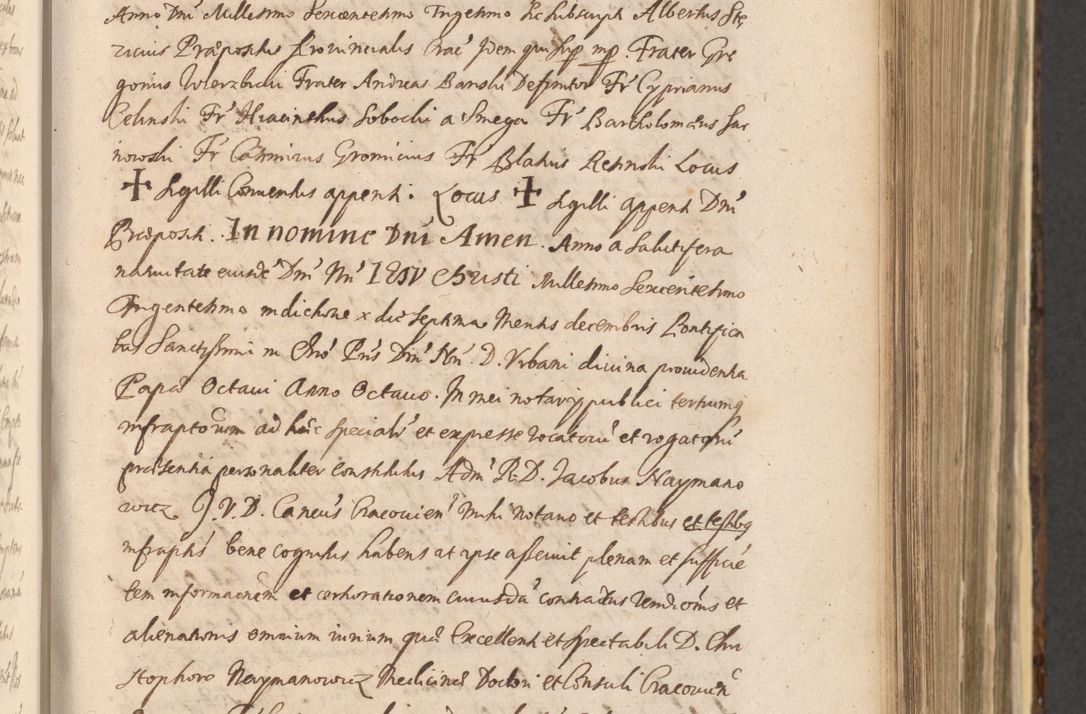 Anno Dni Millesimo Sexcentesimo Trigesimo sic subscripti Albertus Ste
zicius Præpositus Provincialis Crac Idem qui sup mp. Frater Gre
gorius Wierzbicki Frater Andreas Banski Definitor Fr Cyprianus
Celinski Fr Hiacinthus Sobocki a Smega Fr Bartholomæus Sar
nowski Fr Casimirus Gromicius Fr Blasius Retinski Locus
✝ Sigilli Conventus appensi. Locus ✝ Sigilli appensi Dni
Præpositi. In nomine Dni Amen. Anno a Salutifera
nativitate eiusde Dni Nri IESV Christi Millesimo Sexcentesimo
Trigentesimo indictione x die septima Mensis decembris Pontifica
tus Sanctissimi in Chro Pris Dni Nri D. Vrbani divina providentia
Papæ Octavi Anno Octavo. In mei notarij publici testiumq
infraptorum ad hæc specialr et expresse vocatoru et rogatoru
præsentia personaliter constitutus Adm R.D. Jacobus Naymano
wicz J.V.D. Cancus Cracovien mihi notario et testibus et testibq
infraptis bene cognitus habens ut ipse asseruit plenam et sufficie
tem informaonem et certiorationem cuiusda contractus venditonis et
alienationis omnium iurium quæ Excellenti et spectabili D. Chri
stophoro Naymanowicz Medicinæ Doctori et Consuli Cracovien